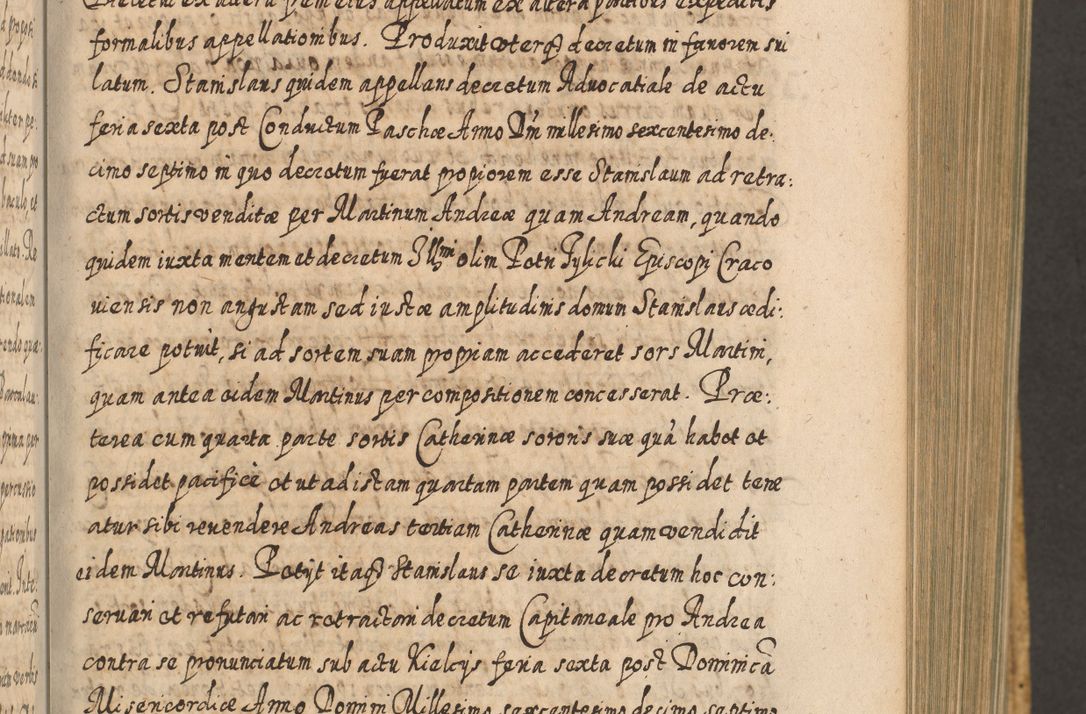 Decretu ex altera præmissis appellatum ex altera partibus expeditis
formalibus appellationibus. Produxit uterq decretum in fauorem sui
latum. Stanislaus quidem appellans decretum Aduocatiale de actu
feria sexta post Conductum Paschœ Anno Dni millesimo sexcentesimo de:
cimo septimo in quo decretum fuerat propiorem esse Stanislaum ad retra:
ctum sortis venditœ per Martinum Andreœ quam Andream, quando
quidem iuxta mentem et decretum Illmi olim Petri Tylicki Episcopi Craco
uiensis non angustam sed iustœ amplitudinis domum Stanislaus œdi:
ficare potuit, si ad sortem suam propriam accederet sors Martini,
quam antea eidem Martinus per compositionem concesserat. Prœ:
terea cum quarta parte sortis Catherinœ sororis suœ quà habet et
possidet pacificè et ut ad istam quartam partem quam possidet tene
atur sibi reuendere Andreas tertiam Catherinœ quam vendidit
eidem Martinus. Petijt itaq Stanislaus se iuxta decretum hoc con:
seruari et refutari ac retractari decretum Capitaneale pro Andrea
contra se pronunciatum sub actu Kielcijs feria sexta post Dominicã
Misericordiœ Anno Domini Millesimo sexcentesimo decimo septimo